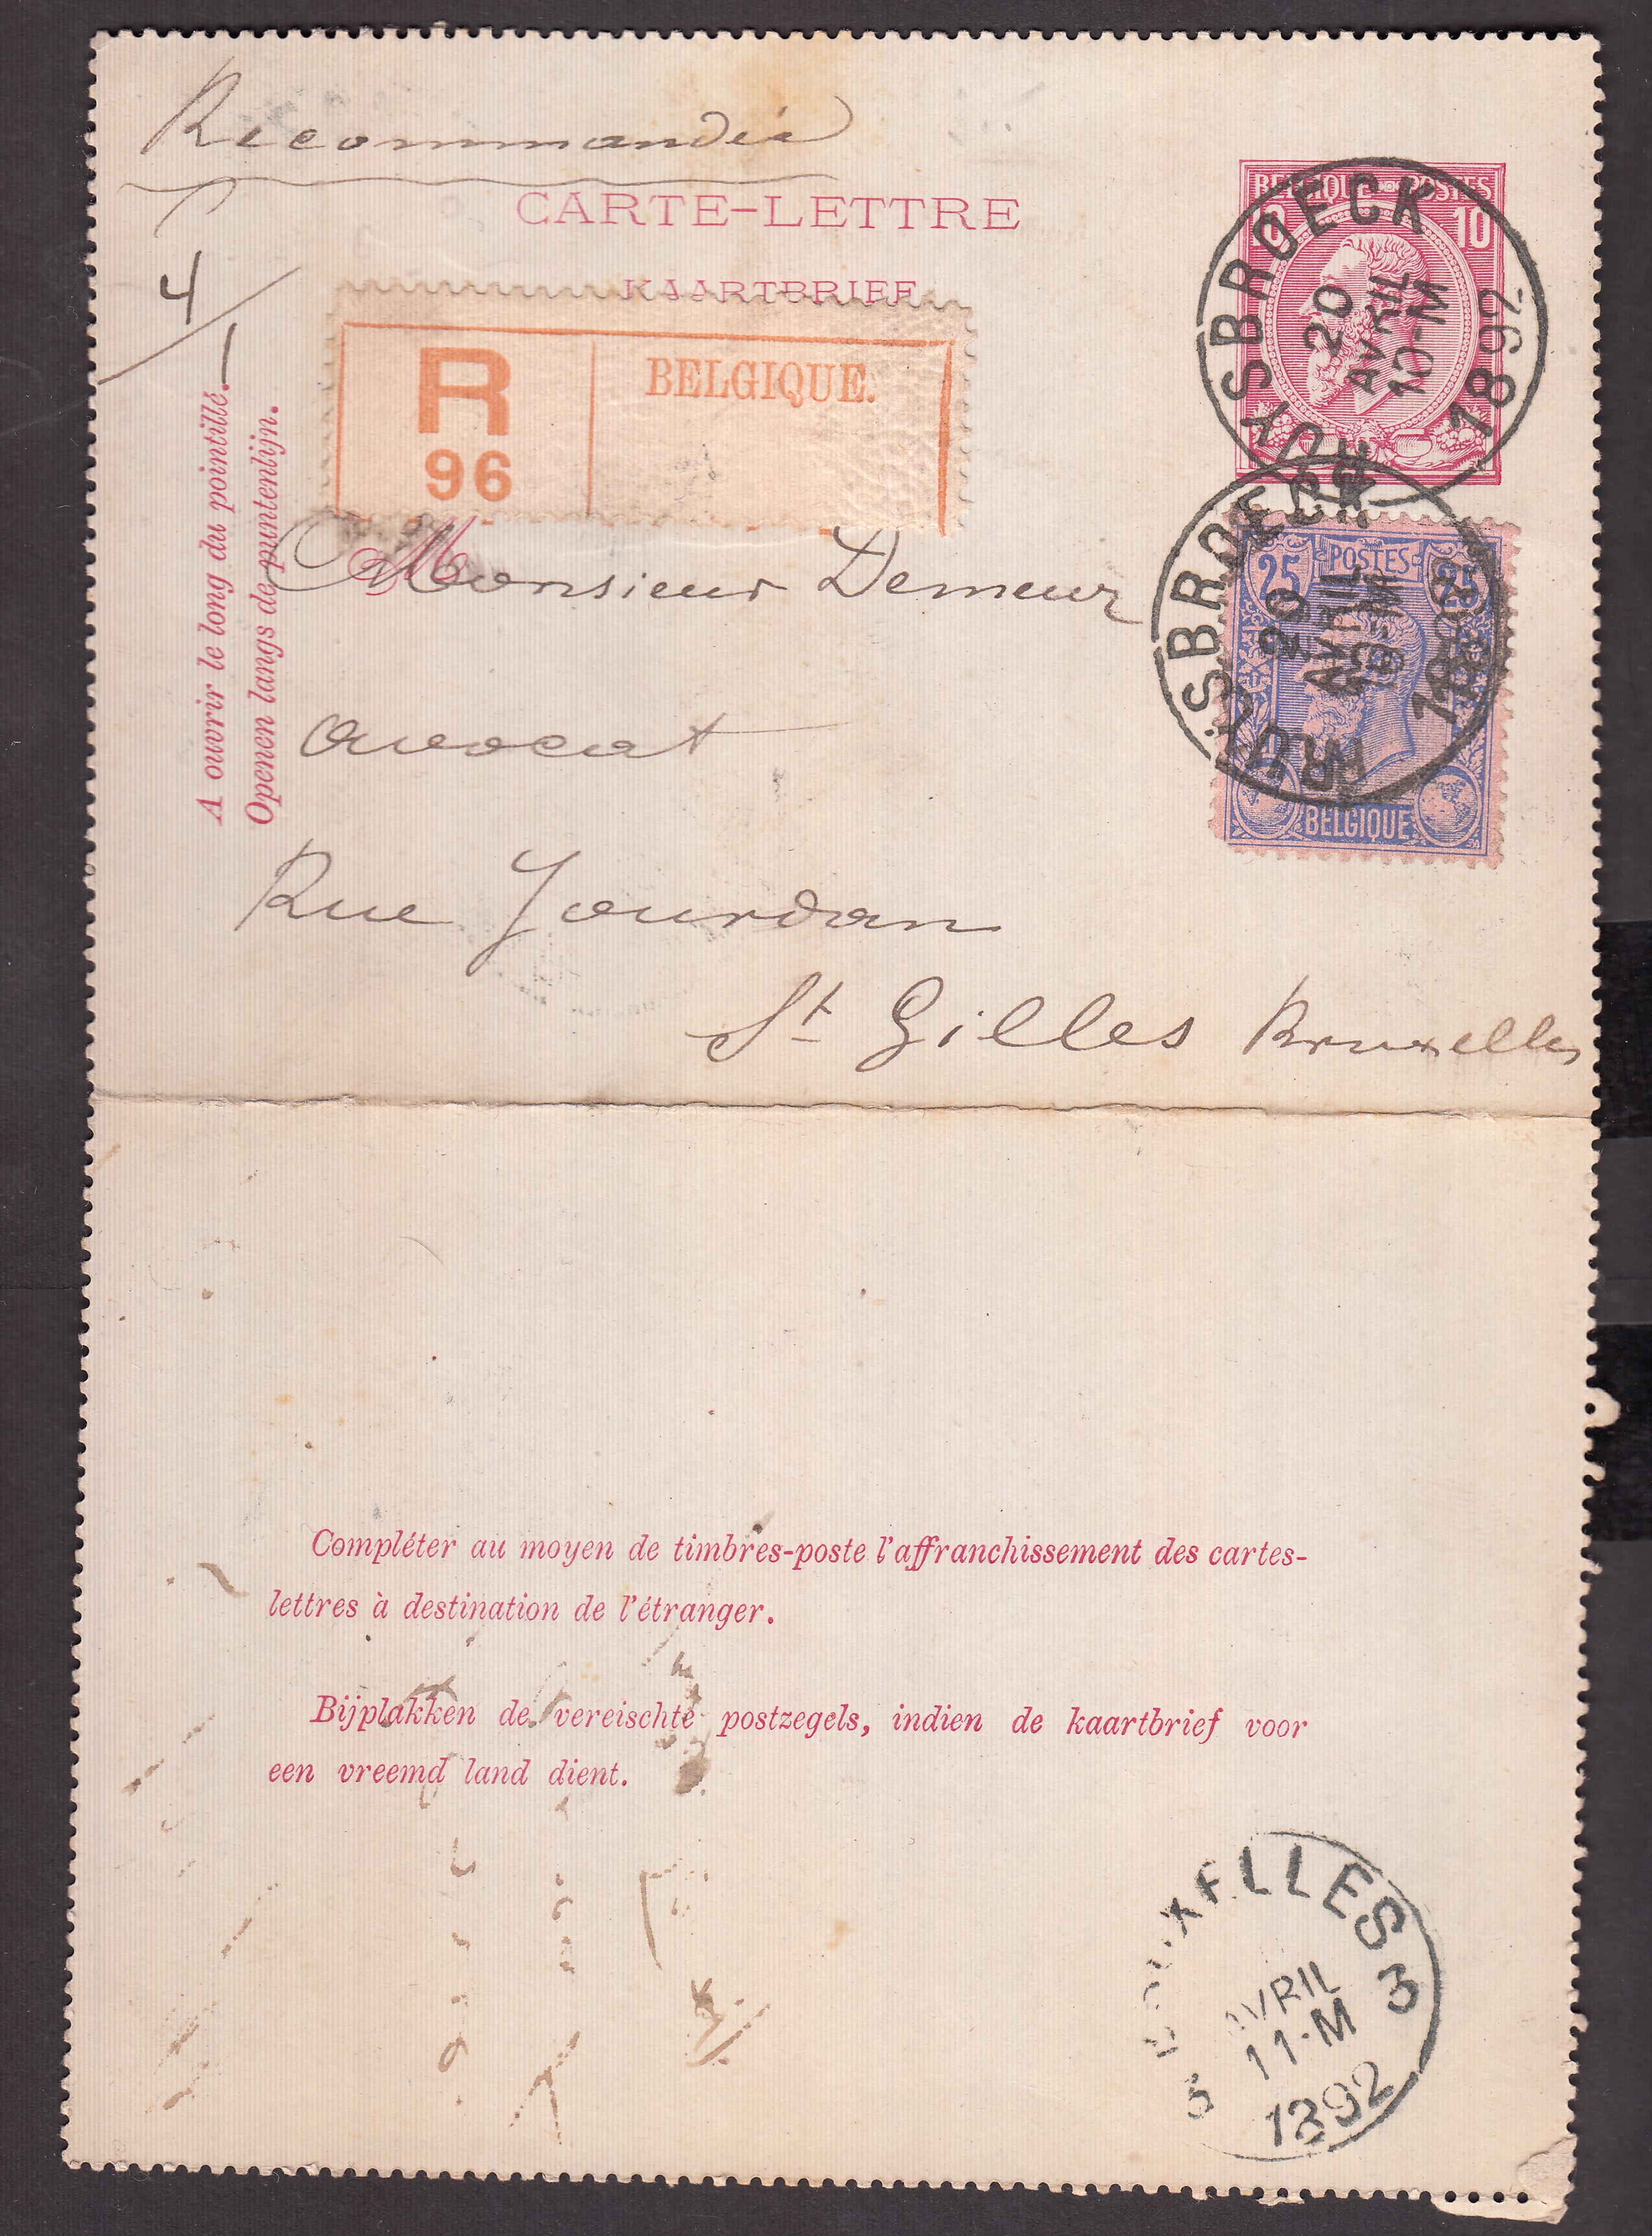 Recommandée
CARTE-LETTRE
KAARTBRIEF
4
1
R
96
BELGIQUE.
A ouvrir le long du pointillé.
Openen langs de puntenlijn.
BELGIQUE POSTES
10 10
RUYSBROECK
20
AVRIL
10-M
1892
POSTES
25 25
BELGIQUE
RUYSBROECK
20
AVRIL
10-M
1892
M
Monsieur Demeur
avocat
Rue Jourdan
St Gilles Bruxelles
Compléter au moyen de timbres-poste l'affranchissement des cartes-
lettres à destination de l'étranger.
Bijplakken de vereischte postzegels, indien de kaartbrief voor
een vreemd land dient.
3 BRUXELLES 3
AVRIL
11-M
1892